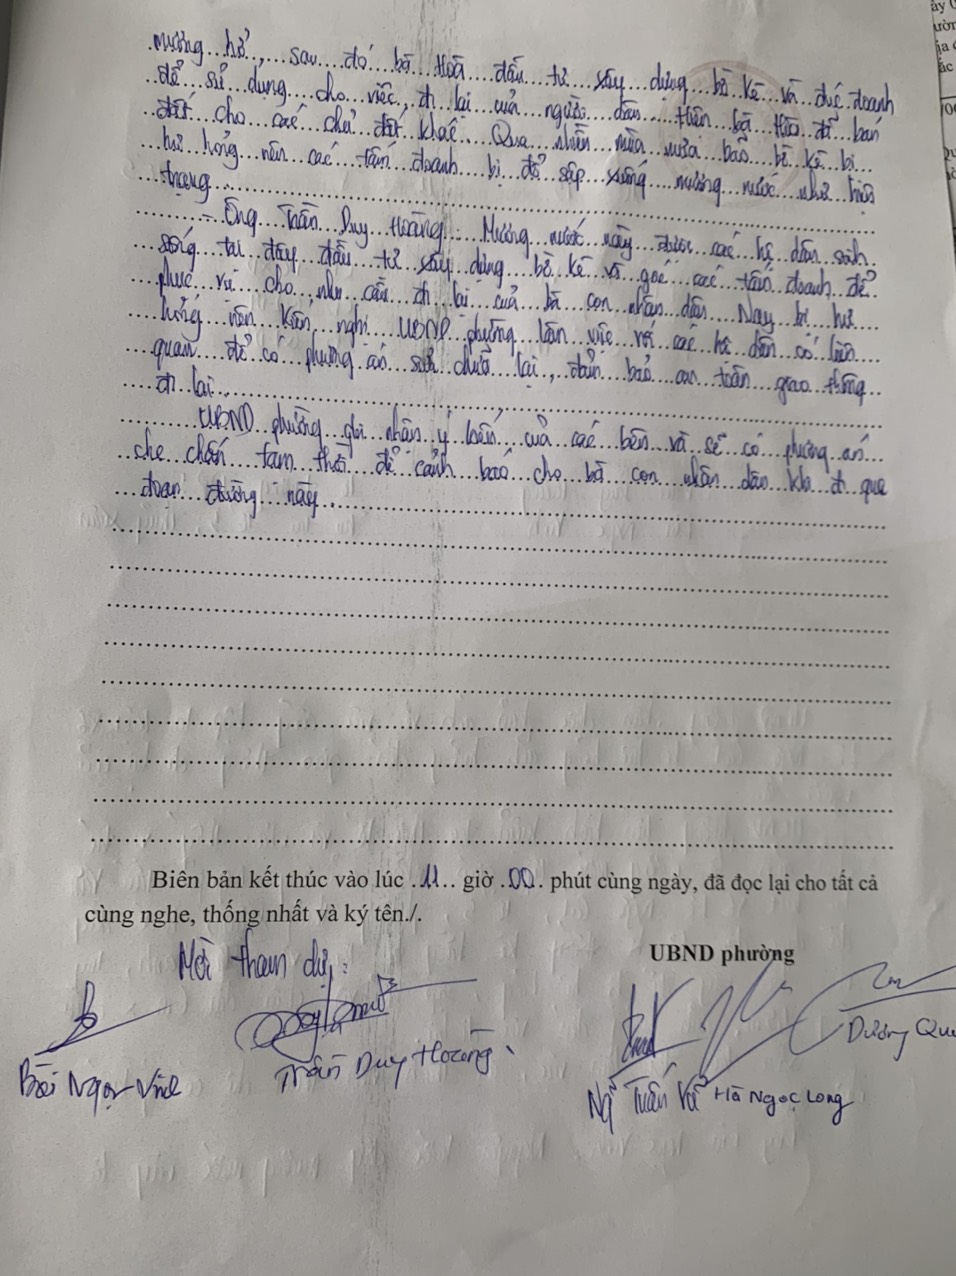 mương hở, sau đó bà Hoà đầu tư xây dựng bờ kè và đúc doanh
để sử dụng cho việc đi lại của người dân, thân bà Hòa để bán
đất cho các chủ đất khác. Qua nhiều mùa mưa bão bờ kè bị
hư hỏng nên các tấm doanh bị đổ sập xuống mương nước như hiện
trạng
- Ông Trần Duy Hoàng: Mương nước này được các hộ dân sinh
sống tại đây đầu tư xây dựng bờ kè và gác các tấm doanh để
phục vụ cho nhu cầu đi lại của bà con nhân dân. Nay bị hư
hỏng nên kiến nghị UBND phường làm việc với các hộ dân có liên
quan để có phương án sửa chữa lại, đảm bảo an toàn giao thông
đi lại.
UBND phường ghi nhận ý kiến của các bên và sẽ có phương án
che chắn tạm thời để cảnh báo cho bà con nhân dân khi đi qua
đoạn đường này.
Biên bản kết thúc vào lúc 11 giờ 00 phút cùng ngày, đã đọc lại cho tất cả
cùng nghe, thống nhất và ký tên./.
Mời tham dự:
UBND phường
Bùi Ngọc Vinh
Trần Duy Hoàng
Ng Tuấn Vũ
Hà Ngọc Long
Dương Qu